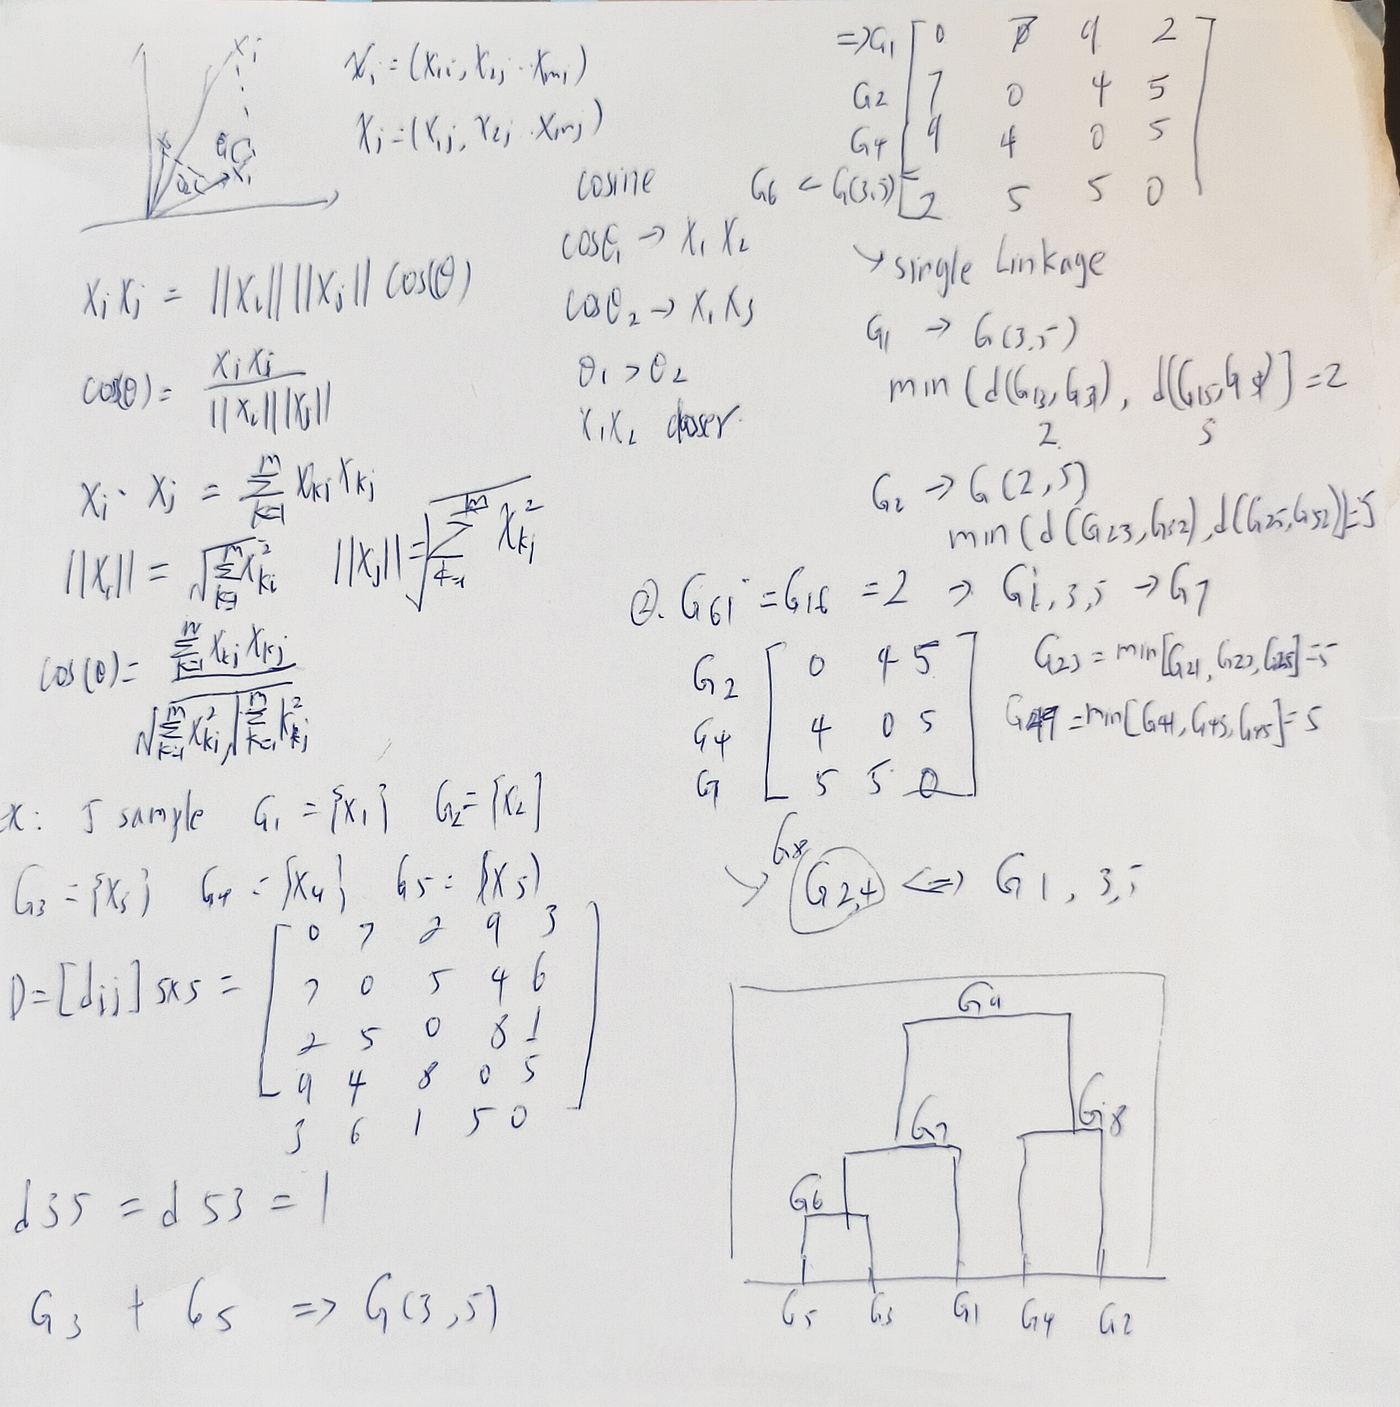 xi = (x1i, x2j .. xmi)
xj = (x1j, x2j .. xmj)
xi xj = ||xi|| ||xj|| cos(θ)
cos(θ) = xi xj / ||xi|| ||xj||
xi · xj = Σ k=1 m xkj xkj
||xi|| = √Σ k=1 m xki²
||xj|| = √Σ k=1 m xkj²
cos(θ) = Σ k=1 m xkj xkj / √Σ k=1 m xki², √Σ k=1 m xkj²
cosine
cosθ1 → x1 x2
cosθ2 → x1 x3
θ1 > θ2
x1x2 closer
x: 5 sample G1 = {x1} G2 = {x2]
G3 = {x3} G4 = {x4} G5 = {x5)
D = [dij] 5x5 =
0 7 2 9 3
7 0 5 4 6
2 5 0 8 1
9 4 8 0 5
3 6 1 5 0
d35 = d53 = 1
G3 + G5 => G(3,5)
=> G1 0 7 9 2
G2 7 0 4 5
G4 9 4 0 5
G6 < G(3,5) 2 5 5 0
single Linkage
G1 → G(3,5)
min (d(G13,G31), d(G15,G51)] = 2
2 5
G2 → G(2,5)
min (d(G23,G32), d(G25,G52)] = 5
②. G61 = G16 = 2 → G1,3,5 → G7
G2 0 4 5
G4 4 0 5
G7 5 5 0
G23 = min[G21, G23, G25] = 5
= min[G41, G43, G45] = 5
G8
G2,4 <=> G1,3,5
G9
G7
G8
G6
G5 G3 G1 G4 G2